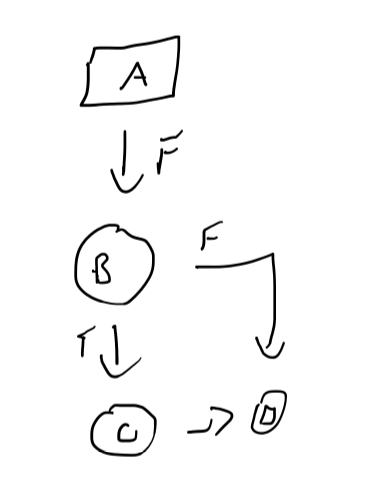 A
F
B
F
T
C
D